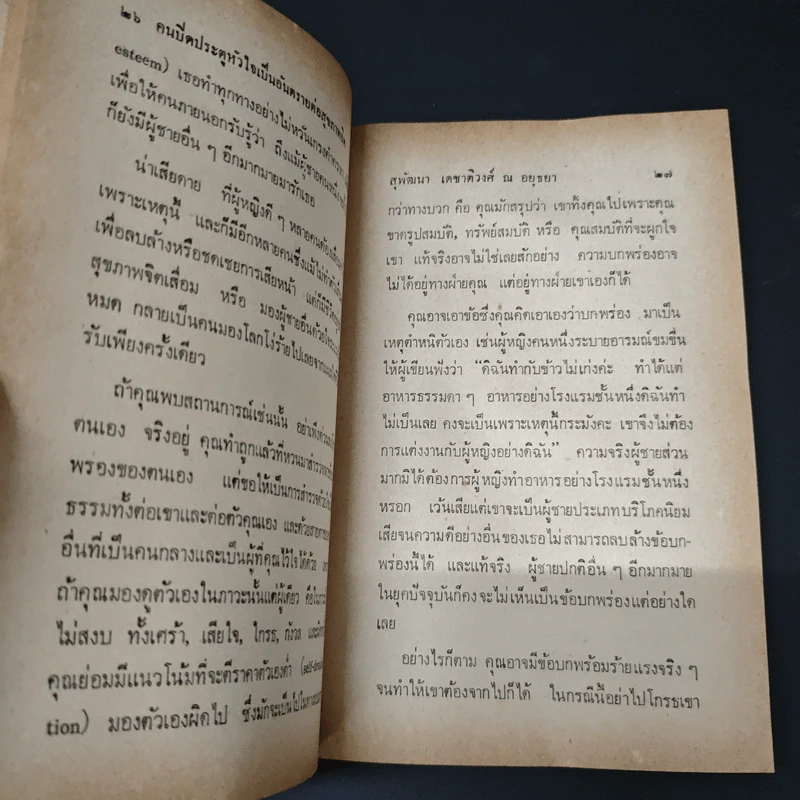 ๒๖ คนปิดประตูหัวใจเป็นอันตรายต่อสุขภาพจิต
esteem) เธอทำทุกทางอย่างไม่หวั่นเกรงคำ
เพื่อให้คนภายนอกรับรู้ว่า ถึงแม้ผู้ชายคนหนึ่ง
ก็ยังมีผู้ชายอื่น ๆ อีกมากมายมารักเธอ
น่าเสียดาย ที่ผู้หญิงดี ๆ หลายคนต้อง
เพราะเหตุนี้ และก็มีอีกหลายคนซึ่งแม้ไม่ทำ
เพื่อลบล้างหรือชดเชยการเสียหน้า แต่ก็มีชีวิต
สุขภาพจิตเสื่อม หรือ มองผู้ชายอื่นด้วย
หมด กลายเป็นคนมองโลกโง่ร้ายไปเลยจาก
รับเพียงครั้งเดียว
ถ้าคุณพบสถานการณ์เช่นนั้น อย่าเพิ่งด่วน
ตนเอง จริงอยู่ คุณทำถูกแล้วที่หวนมาสำรวจ
พรองของตนเอง แต่ขอให้เป็นการสำรวจด้วย
ธรรมทั้งต่อเขาและต่อตัวคุณเอง และด้วยสายตา
อื่นที่เป็นคนกลางและเป็นผู้ที่คุณไว้ใจได้ด้วย
ถ้าคุณมองดูตัวเองในภาวะนั้นแต่ผู้เดียว คือใน
ไม่สงบ ทั้งเศร้า, เสียใจ, โกรธ, กังวล และ
คุณย่อมมีแนวโน้มที่จะตีราคาตัวเองต่ำ
tion) มองตัวเองผิดไป ซึ่งมักจะเป็นไปในทาง
สุพัฒนา เดชาติวงศ์ ณ อยุธยา ๒๗
กว่าทางบวก คือ คุณมักสรุปว่า เขาทิ้งคุณไปเพราะคุณ
ขาดรูปสมบัติ, ทรัพย์สมบัติ หรือ คุณสมบัติที่จะผูกใจ
เขา แท้จริงอาจไม่ใช่เลยสักอย่าง ความบกพร่องอาจ
ไม่ได้อยู่ทางฝ่ายคุณ แต่อยู่ทางฝ่ายเขาเองก็ได้
คุณอาจเอาข้อซึ่งคุณคิดเอาเองว่าบกพร่อง มาเป็น
เหตุตำหนิตัวเอง เช่นผู้หญิงคนหนึ่งระบายอารมณ์ขมขื่น
ให้ผู้เขียนฟังว่า “ดิฉันทำกับข้าวไม่เก่งค่ะ ทำได้แต่
อาหารธรรมดา ๆ อาหารอย่างโรงแรมชั้นหนึ่งดิฉันทำ
ไม่เป็นเลย คงจะเป็นเพราะเหตุนี้กระมังคะ เขาจึงไม่ต้อง
การแต่งงานกับผู้หญิงอย่างดิฉัน” ความจริงผู้ชายส่วน
มากมิได้ต้องการผู้หญิงทำอาหารอย่างโรงแรมชั้นหนึ่ง
หรอก เว้นเสียแต่เขาจะเป็นผู้ชายประเภทบริโภคนิยม
เสียจนความดีอย่างอื่นของเธอไม่สามารถลบล้างข้อบก-
พร่องนี้ได้ และแท้จริง ผู้ชายปกติอื่น ๆ อีกมากมาย
ในยุคปัจจุบันก็คงจะไม่เห็นเป็นข้อบกพร่องแต่อย่างใด
เลย
อย่างไรก็ตาม คุณอาจมีข้อบกพร้อมร้ายแรงจริง ๆ
จนทำให้เขาต้องจากไปก็ได้ ในกรณีนี้อย่าไปโกรธเขา